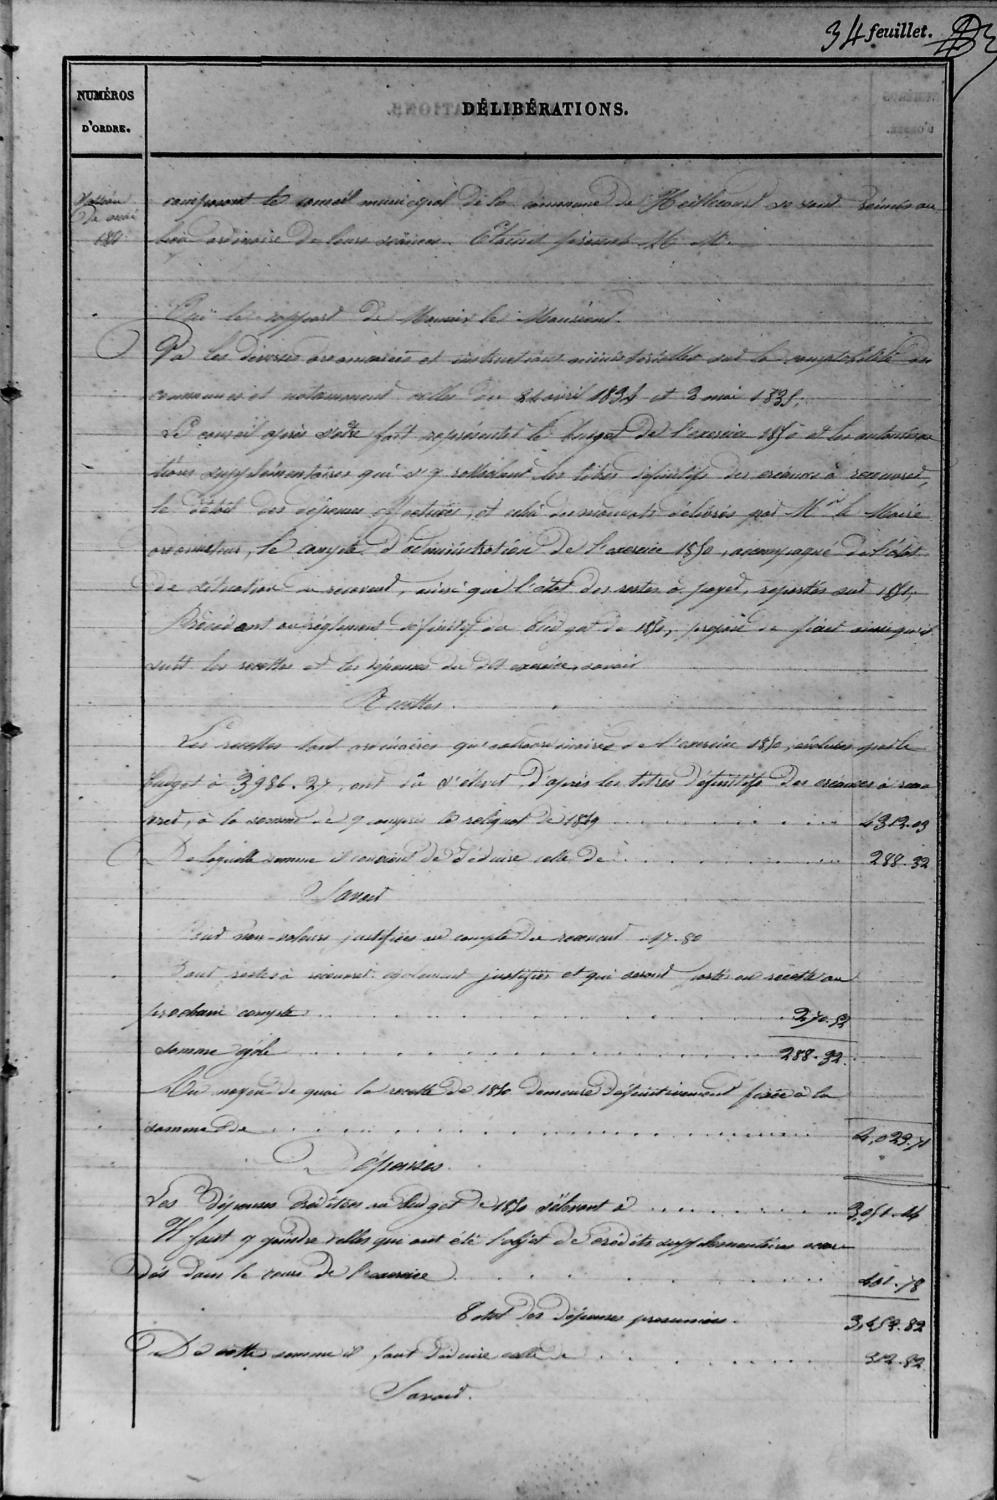 34 feuillet.
NUMÉROS
D'ORDRE.
DÉLIBÉRATIONS.
Session
De mai
composant le conseil municipal de la commune de Heillecourt se sont réunis au
lieu ordinaire de leurs séances. Etaient présents M. M.
Oui le rapport de Monsieur le
Vu les diverses ordonnances et instructions ministérielles sur la comptabilité des
communes et notamment celles du 24 avril 1834 et 2 mai 1835,
Le conseil après s'être fait représenter le budget de l'exercice 1850 et les autorisa
tions supplémentaires qui s'y rattachent les titres définitifs des créances à recouvrer,
le détail des dépenses effectuées, et celui des mandats délivrés par Mr le Maire
ordonnateur, le compte d'administration de l'exercice 1850, accompagné de l'état
de situation du receveur, ainsi que l'état des restes à payer, reportés sur 1851,
Procédant au règlement définitif du budget de 1850, propose de fixer ainsi qu'il
suit les recettes et les dépenses du dit exercice, savoir
Recettes.
Les recettes tant ordinaires qu'extraordinaires de l'exercice 1850, évaluées par le
budget à 3986.27, ont dû s'élever, d'après les titres définitifs des créances à recou
vrer, à la somme de y compris le reliquat de 1849 4312.03
De laquelle somme il convient de déduire celle de 288.32
Savoir
Pour non-valeurs justifiées au compte du receveur 17.80
Pour restes à recouvrer également justifiés et qui seront portés en recette au
prochain compte 270.52
somme égale 288.32.
Au moyen de quoi la recette de 1850 demeure définitivement fixée à la
somme de 4,023.71
Dépenses.
Les dépenses créditées au budget de 1850 s'élèvent à 3,051.14
Il faut y joindre celles qui ont été l'objet de crédits supplémentaires accor
dés dans le cours de l'exercice 401.78
Total des dépenses présumées. 3,452.82
De cette somme il faut déduire celle de 312.82
Savoir.